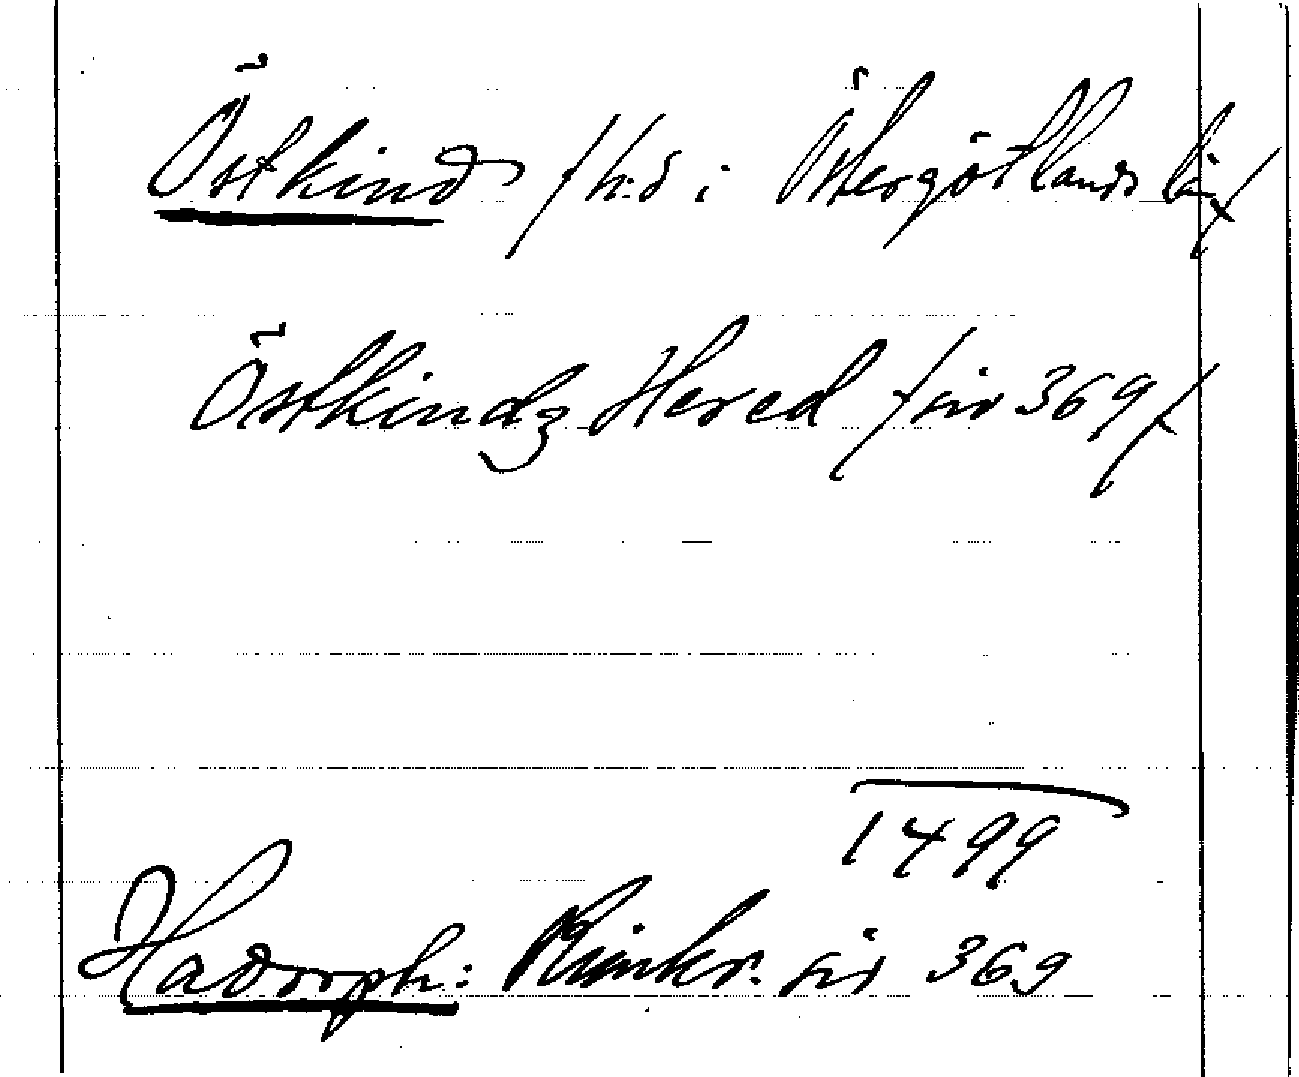 Östkind /h:d i Östergötlands län/
Östkindz Hered /sid 369/
1499
Hadorph: Rimkr. sid 369